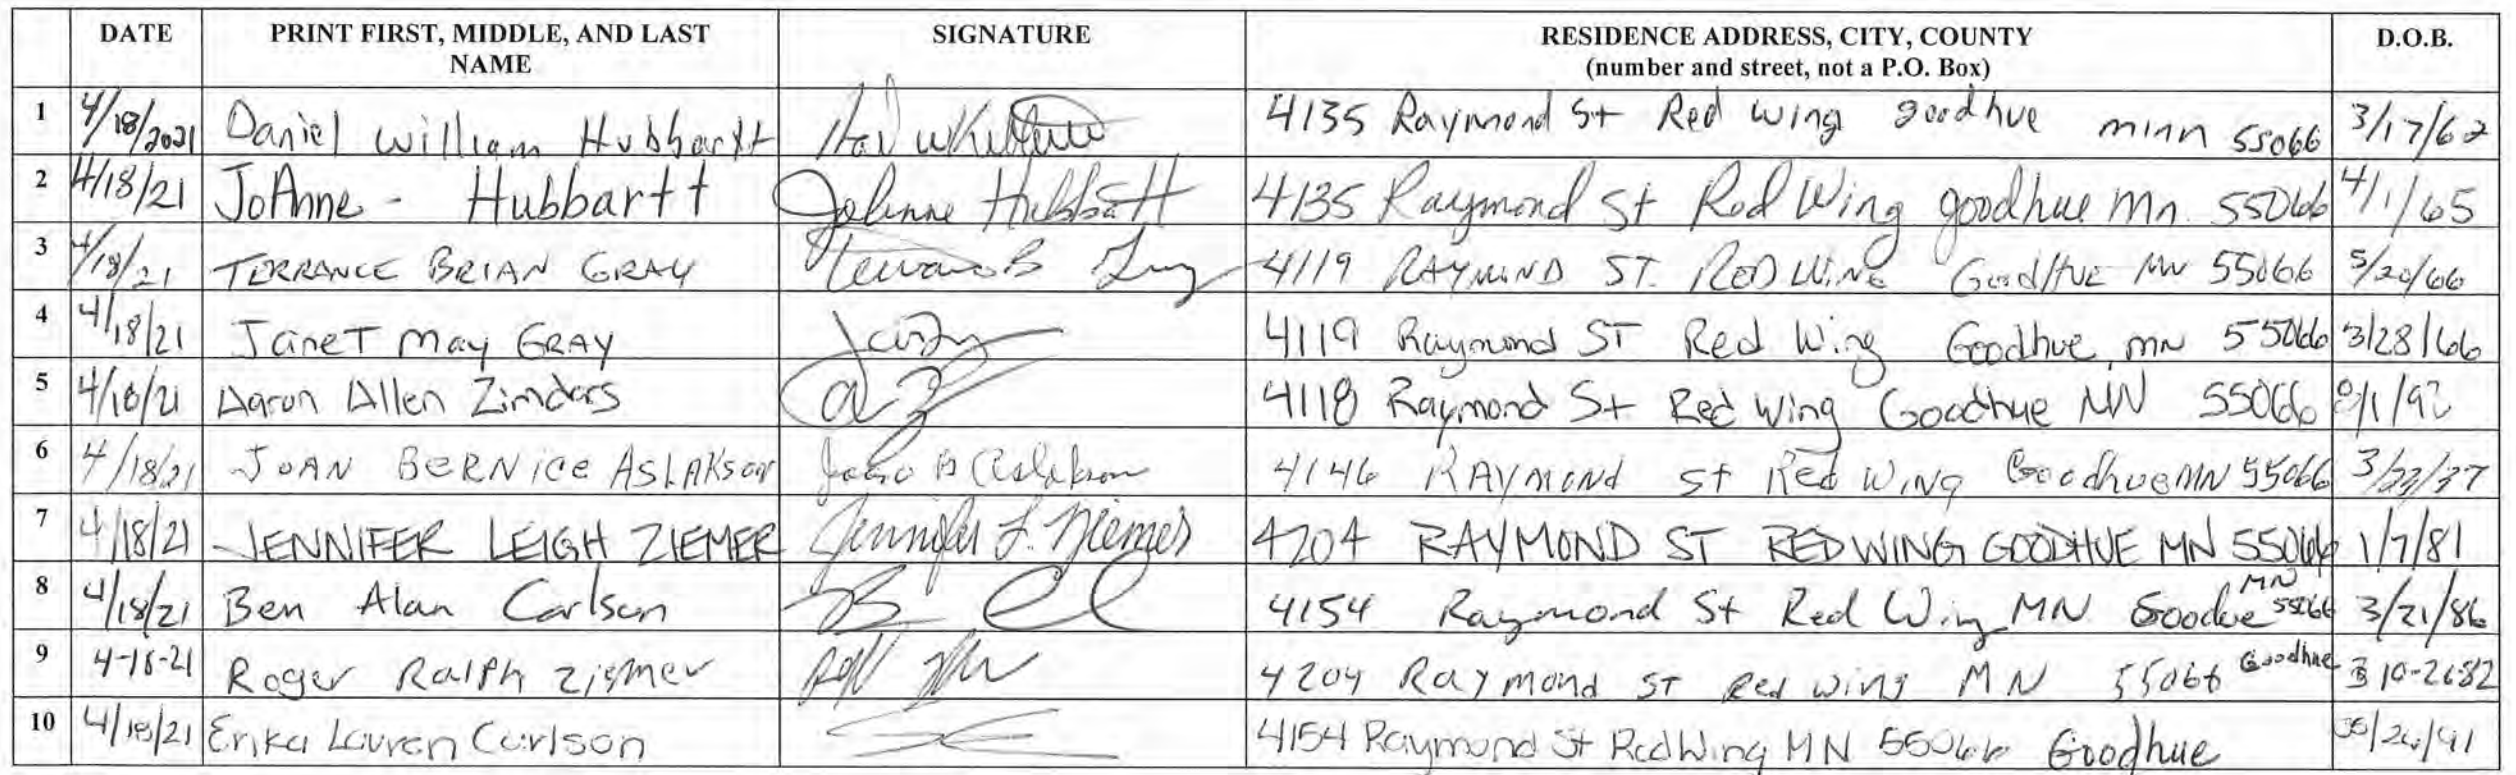 DATE PRINT FIRST, MIDDLE, AND LAST NAME SIGNATURE RESIDENCE ADDRESS, CITY, COUNTY (number and street, not a P.O. Box) D.O.B.
1 4/18/2021 Daniel William Hubbartt 4135 Raymond St Red Wing goodhue minn 55066 3/17/62
2 4/18/21 JoAnne - Hubbartt JoAnne Hubbartt 4135 Raymond St Red Wing goodhue Mn. 55066 4/1/65
3 4/18/21 TERRANCE BRIAN GRAY 4119 RAYMOND ST. RED WING GoodHuE MN 55066 5/20/66
4 4/18/21 JaneT May GRAY 4119 Raymond ST Red Wing Goodhue, mn 55066 3/28/66
5 4/18/21 Aaron Allen Zimdars 4118 Raymond St Red Wing Goodhue MN 55066
6 4/18/21 JOAN BERNice ASLAKson Joan B Aslakson 4146 RAYMOND St Red WiNg Goodhue MN 55066 3/23/37
7 4/18/21 JENNIFER LEIGH ZIEMER Jennifer L. Ziemer 4204 RAYMOND ST RED WING GOODHUE MN 55066 1/7/81
8 4/18/21 Ben Alan Carlson 4154 Raymond St Red Wing MN Goodue MN 55066 3/21/86
9 4-18-21 Roger Ralph Ziemer 4204 Raymond ST Red Wing MN 55066 Goodhue 10-26-82
10 4/18/21 Erika Lauren Carlson 4154 Raymond St Red Wing MN 55066 Goodhue